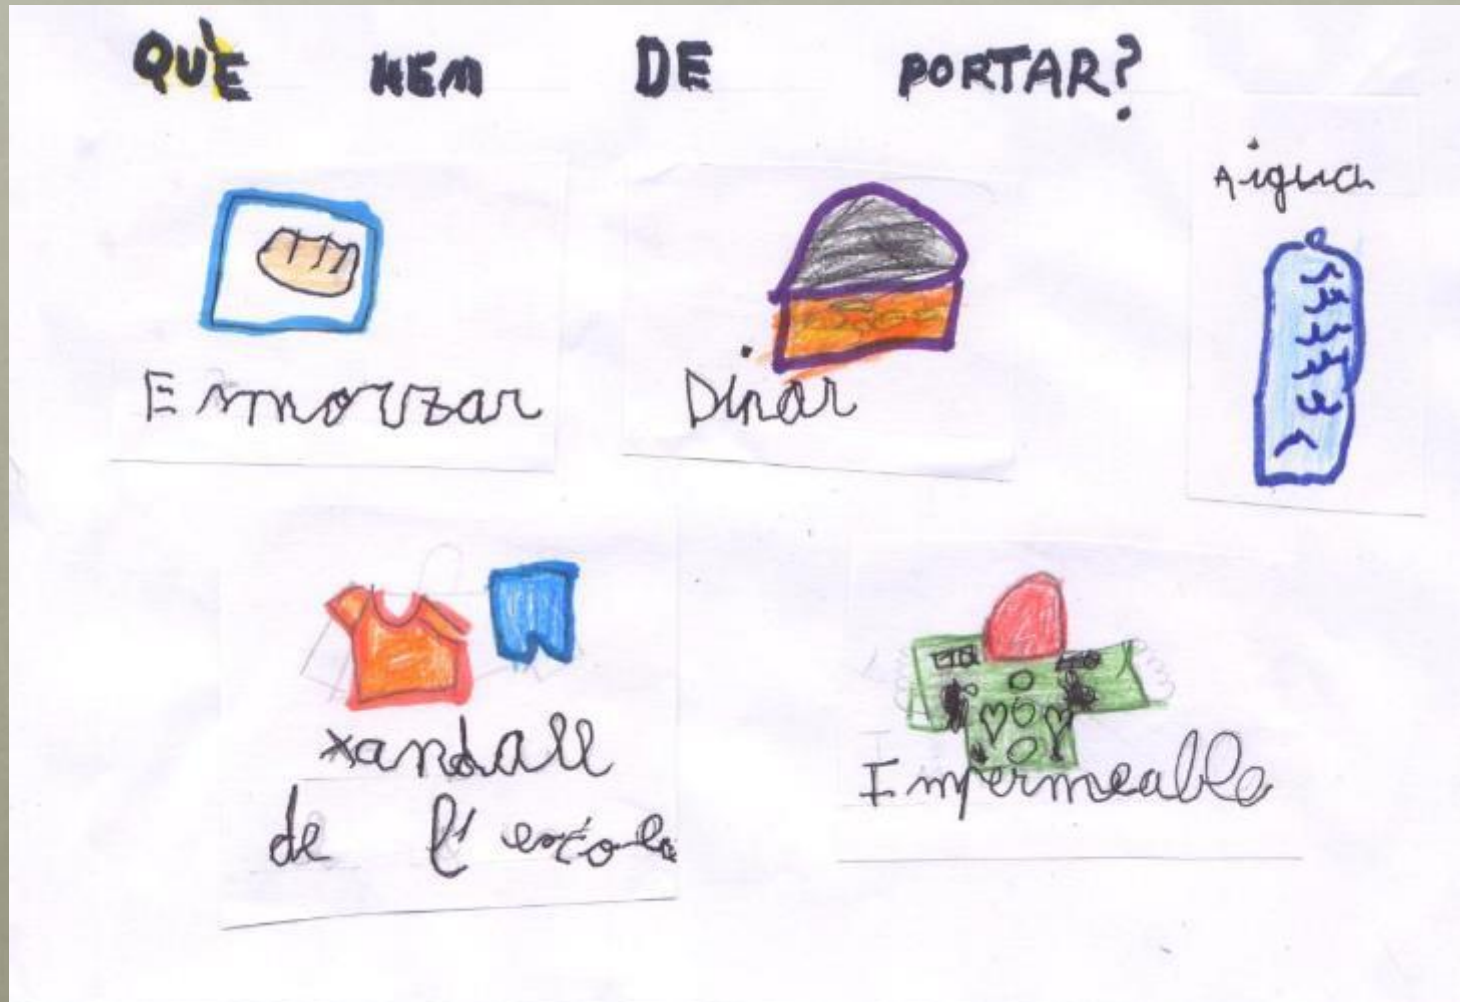 QUÈ HEM DE PORTAR?
Aigua
Esmorzar
Dinar
xandall
de l'escola
Impermeable